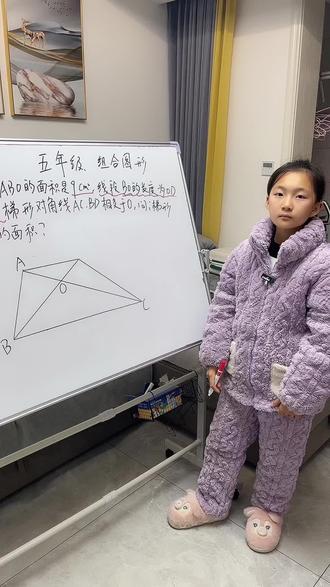 五年级、组合图形
ABO的面积是9cm²,线段BO的长度为OD
梯形对角线AC.BD相交于O,问:梯形
的面积?
A
O
B
C